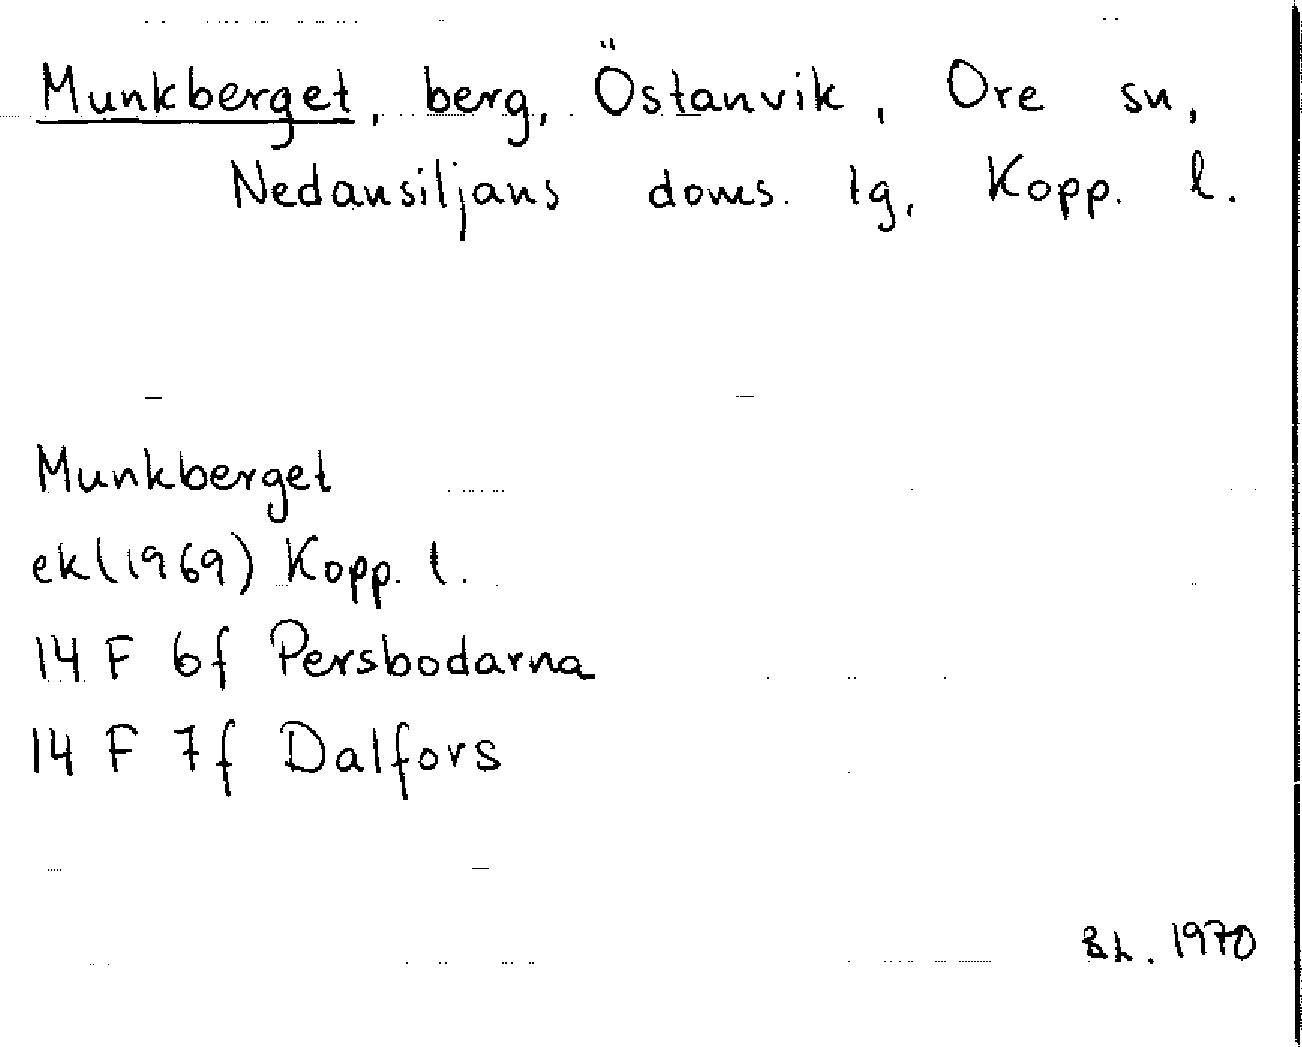 Munkberget, berg, Östanvik, Ore sn,
Nedansiljans doms. lg, Kopp. l.
Munkberget
ek (1969) Kopp. l.
14 F 6f Persbodarna
14 F 7f Dalfors
1970